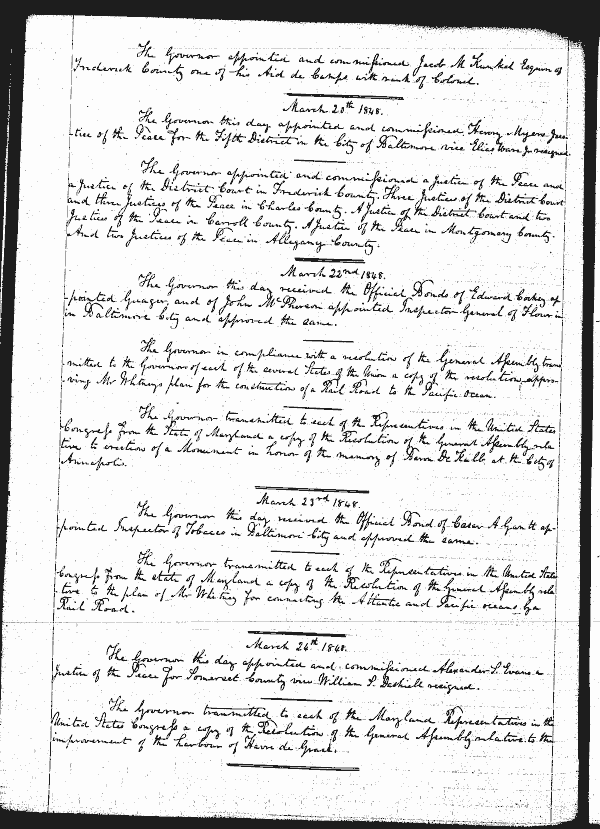 The Governor appointed and commissioned Jacob M Kunkel Esquire of
Frederick County one of his Aid de Camps with rank of Colonel.
March 20th 1848.
The Governor this day appointed and commissioned Henry Myers Jus-
-tice of the Peace for the Fifth District in the City of Baltimore vice Elias Ware Jr resigned
The Governor appointed and commissioned a Justice of the Peace and
a Justice of the District Court in Frederick County. Three Justices of the District Court
and three Justices of the Peace in Charles County. A Justice of the District Court and two
Justices of the Peace in Carroll County. A Justice of the Peace in Montgomery County.
And two Justices of the Peace in Allegany County.
March 22nd 1848.
The Governor this day received the Official Bonds of Edward Corkey ap
-pointed Guager, and of John McPherson appointed Inspector General of Flour in
in Baltimore City and approved the same.
The Governor in compliance with a resolution of the General Assembly trans
-mitted to the Governors of each of the several States of the Union a copy of the resolution, appro-
ving Mr Whitneys plan for the construction of a Rail Road to the Pacific Ocean.
The Governor transmitted to each of the Representatives in the United States
Congress from the State of Maryland a copy of the Resolution of the General Assembly rela
tive to erection of a Monument in honor of the memory of Baron De Kalb, at the City of
Annapolis.
March 23rd 1848.
The Governor this day received the Official Bond of Casar A Gantt ap-
-pointed Inspector of Tobacco in Baltimore City and approved the same.
The Governor transmitted to each of the Representatives in the United States
Congress from the state of Maryland a copy of the Resolution of the General Assembly rela
-tive to the plan of Mr Whitney for connecting the Atlantic and Pacific oceans by a
Rail Road.
March 24th 1848.
The Governor this day appointed and commissioned Alexander S. Evans a
Justice of the Peace for Somerset County vice William S. Dashiell resigned.
The Governor transmitted to each of the Maryland Representatives in the
United States Congress a copy of the Resolution of the General Assembly relative to the
improvement of the harbour of Havre de Grace.